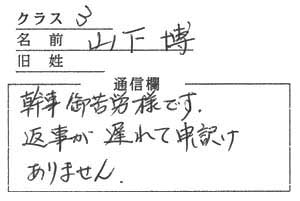 クラス 3
名前 山下 博
旧姓
通信欄
幹事御苦労様です.
返事が遅れて申訳け
ありません.